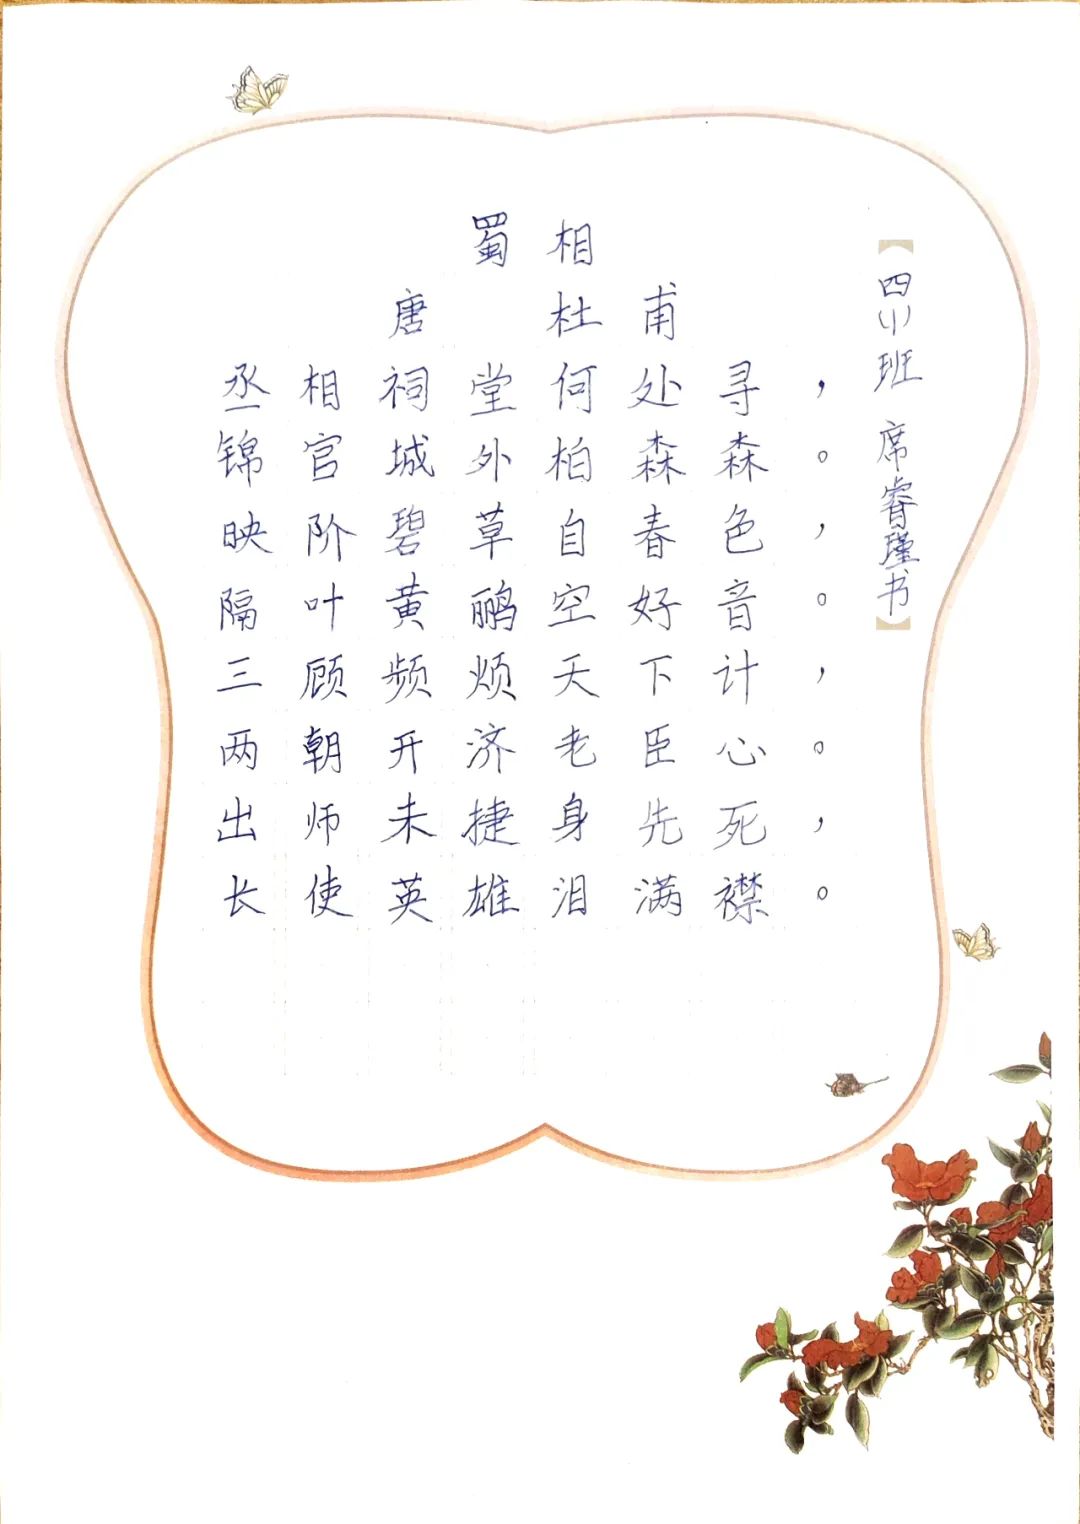 蜀相
唐 杜甫
丞相祠堂何处寻，
锦官城外柏森森。
映阶碧草自春色，
隔叶黄鹂空好音。
三顾频烦天下计，
两朝开济老臣心。
出师未捷身先死，
长使英雄泪满襟。
【四(1)班 席睿瑾书】